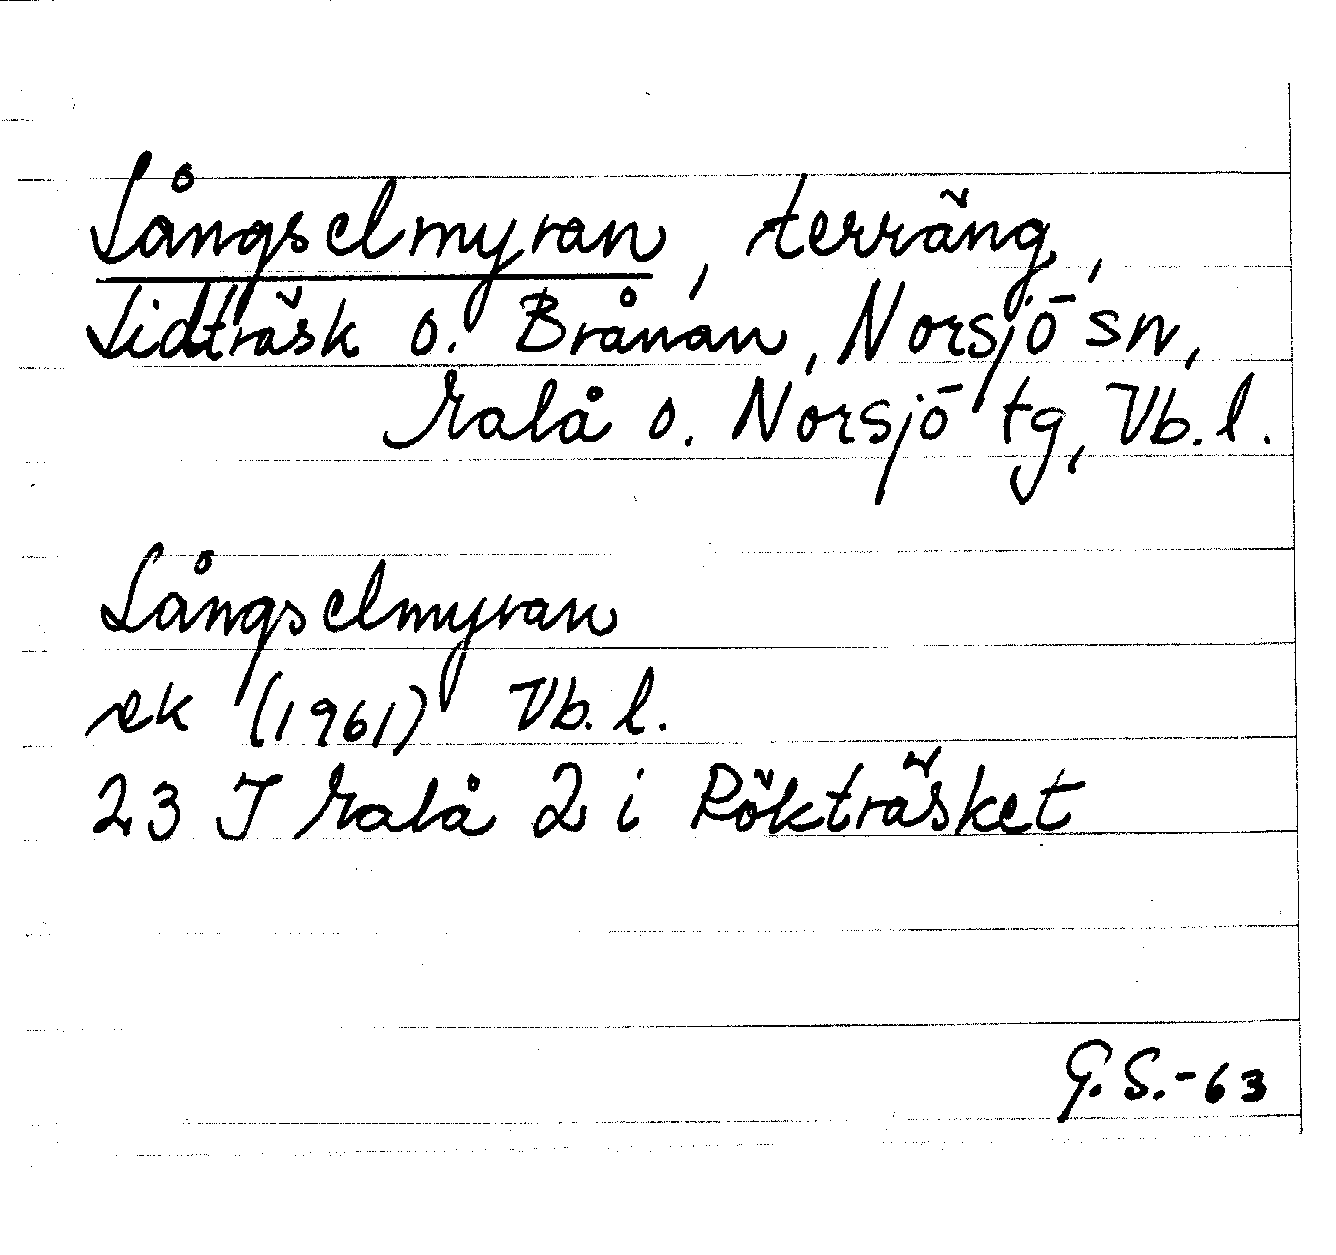 Långselmyran, terräng,
Lidträsk o. Brånan, Norsjö sn,
Malå o. Norsjö tg, Vb. l.
Långselmyran
ek (1961) Vb. l.
23 J Malå 2 i Rökträsket
G. S. - 63